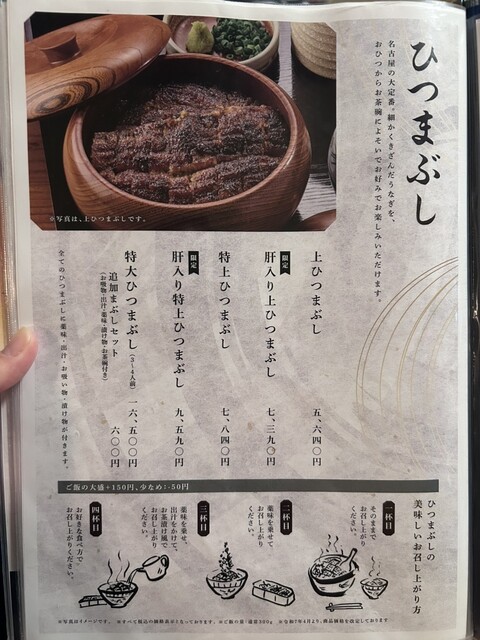 ひつまぶし
名古屋の大定番。細かくきざんだうなぎを、
おひつからお茶碗によそいでお好みでお楽しみいただけます。
※写真は、上ひつまぶしです。
上ひつまぶし 五、六四〇円
限定
肝入り上ひつまぶし 七、三九〇円
特上ひつまぶし 七、八四〇円
限定
肝入り特上ひつまぶし 九、五九〇円
特大ひつまぶし(3~4人前) 一六、五〇〇円
追加まぶしセット 六〇〇円
(お吸物・出汁・薬味・漬け物・お茶碗付き)
全てのひつまぶしに薬味・出汁・お吸い物・漬け物が付きます。
ご飯の大盛+150円、少なめ:-50円
ひつまぶしの
美味しいお召し上がり方
一杯目
そのままで
お召し上がり
ください。
二杯目
薬味を乗せて
お召し上がり
ください。
三杯目
薬味を乗せ、
出汁をかけて、
お茶漬け風で
お召し上がり
ください。
四杯目
お好きな食べ方で
お召し上がりください。
※写真はイメージです。 ※すべて税込の価格表示となっております。 ※ご飯の量:通常300g ※令和7年4月より、商品価格を改定しております